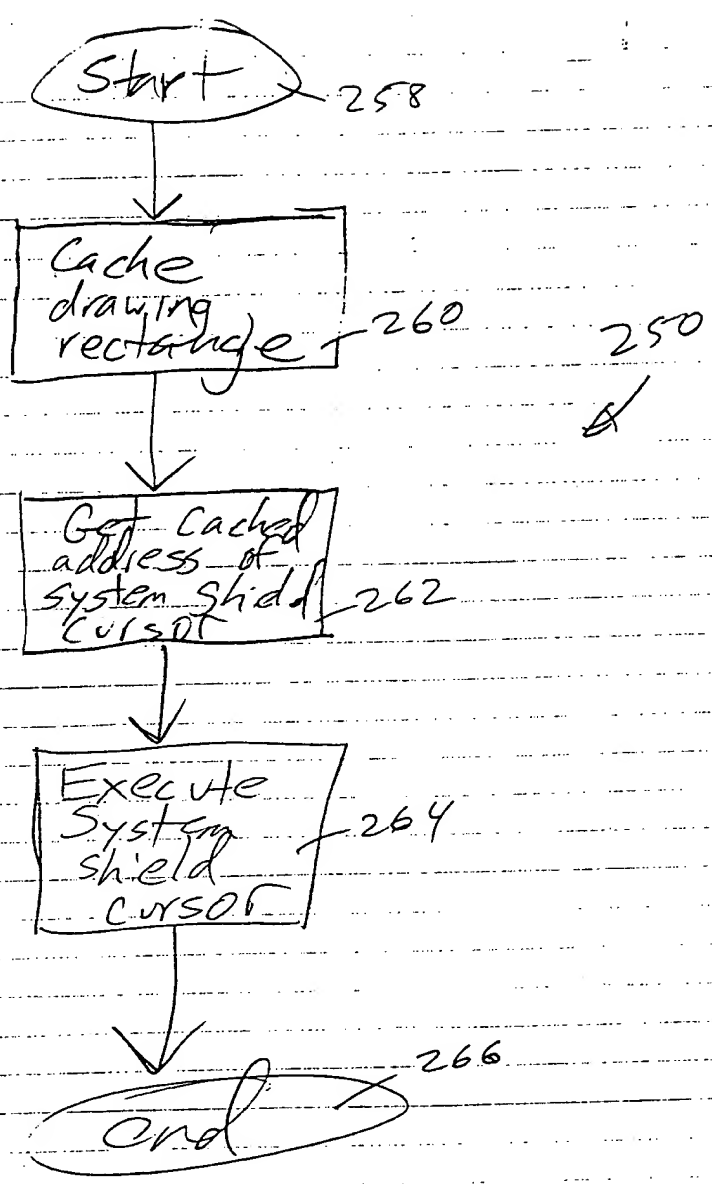 Start
258
Cache
drawing
rectangle
260
250
Get Cached
address of
system shield
cursor
262
Execute
System
shield
cursor
264
266
end